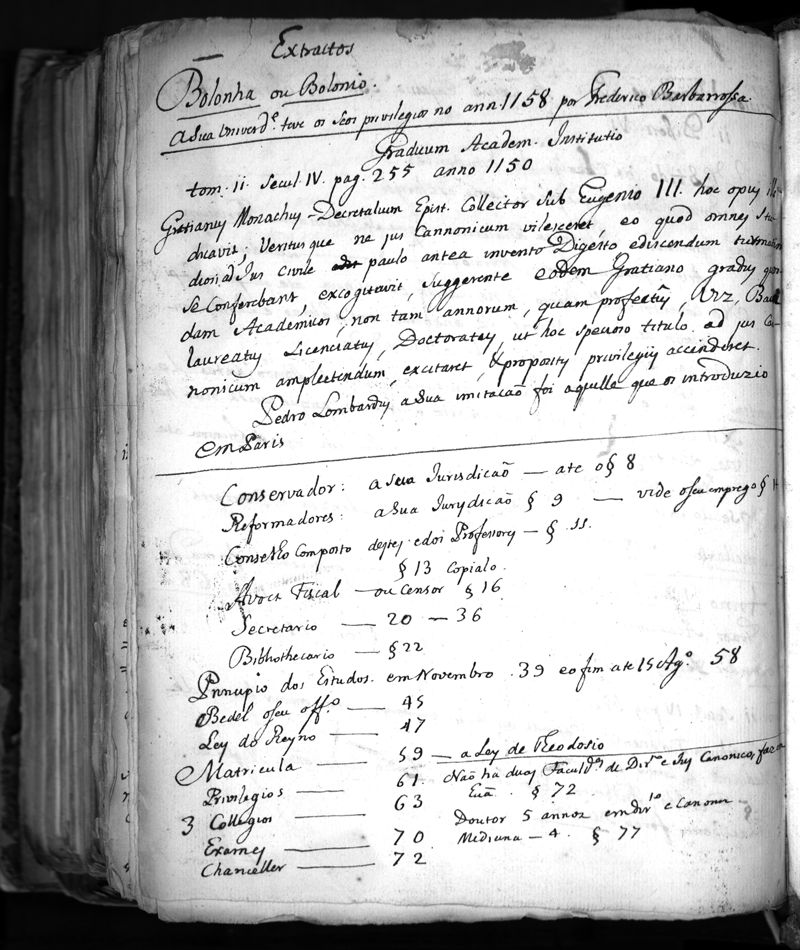 Extractos
Bolonha ou Bolonio.
A Sua Univerd.e teve os seos privilegios no ann. 1158 por Frederico Barbarrossa.
Graduum Academ. Institutio
tom. II. Secul. IV. pag. 255 anno 1150
Gratianus Monachus - Decretalium Epist. Collector sub Eugenio III. hoc opus
dicavit; Veritus que ne jus Cannonicum vilesceret, eo quod omnes Stu-
diosi ad Jus Civile paulo antea invento Digesto ediscendum turmatim
se Conferebant, excogitavit, suggerente eodem Gratiano gradus quos
dam Academicos, non tam annorum, quam profectus Viz, Bacca
laureatus Licenciatus, Doctoratus, ut hoc specioso titulo ad jus Ca-
nonicum amplectendum, excitaret, & propositis privilegiis accenderet.
Pedro Lombardus a Sua imitacaõ foi aquelle que os introduzio
em Paris
Conservador: a sua Jurisdicaõ — ate o § 8
Reformadores: a Sua Jurysdicaõ § 9 — vide o seu emprego §
Conselho Composto destes e dos Professores — § 11.
§ 13 copialo.
Avocat Fiscal — ou Censor § 16
Secretario — 20 — 36
Bibliothecario — § 22
Principio dos Estudos. em Novembro . 39 e o fim ate 15 Ag.o 58
Bedel o seu off.o — 45
Ley do Reyno — 47
Matricula — 59 — a Ley de Theodosio
Privilegios — 61. Naõ ha duas Faculd.es de Dir.o e Jus Canonico, faz a
3 Collegios — 63 . § 72
Doutor 5 annos em dir.to e Canonn -
Exames — 70 Medicina — 4. § 77
Chanceller — 72